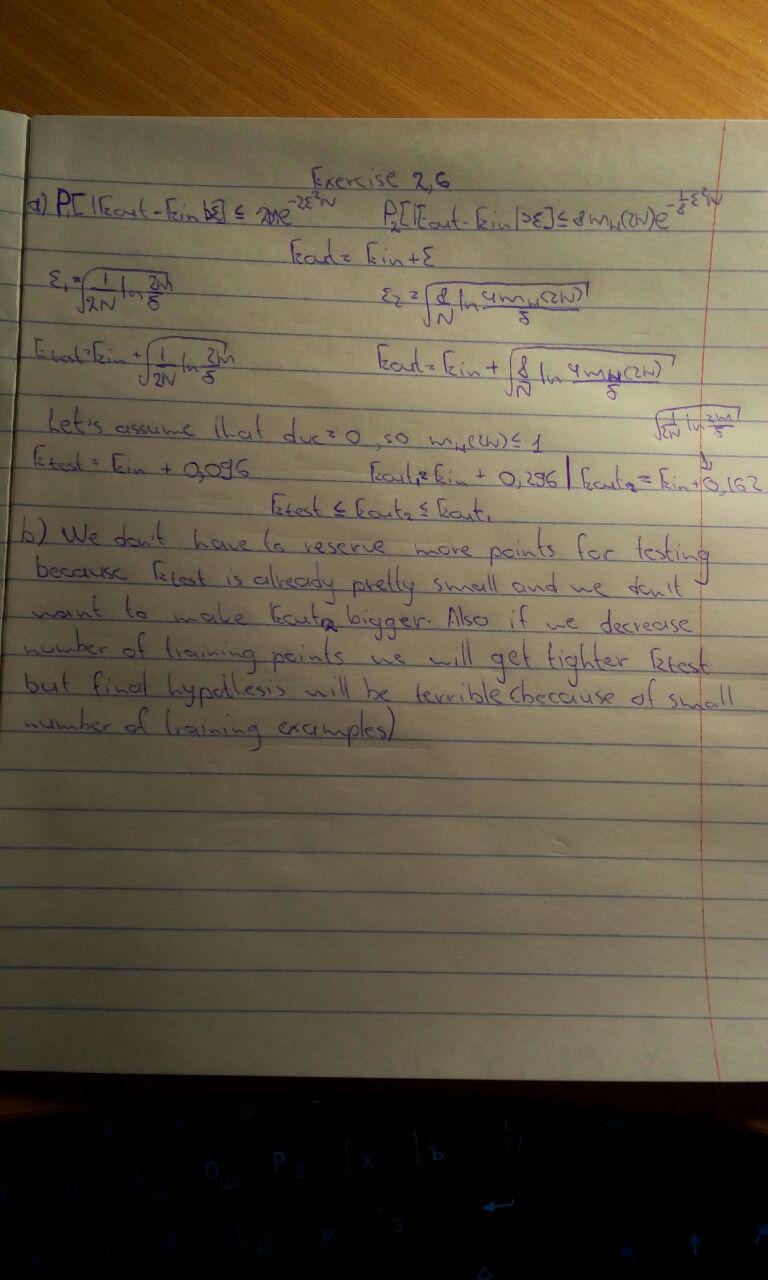 Exercise 2,6
a) P₁[|Eout - Ein|>ε] ≤ 2Me^{-2ε²N} P₂[|Eout - Ein|>ε] ≤ 8m_H(2N)e^{-1/8 ε²N}
Eout = Ein + ε
ε₁ = √(1/2N ln 2M/δ) ε₂ = √(8/N ln 4m_H(2N)/δ)
Etest = Ein + √(1/2N ln 2M/δ) Eout = Ein + √(8/N ln 4m_H(2N)/δ)
Let's assume that dvc = 0, so m_H(2N) ≤ 1 √(1/2N ln 2M/δ)
Etest = Ein + 0,096 Eout₁ = Ein + 0,296 | Eout₂ = Ein + 0,162
Etest ≤ Eout₂ ≤ Eout₁
b) We don't have to reserve more points for testing
because Etest is already pretty small and we don't
want to make Eout₂ bigger. Also if we decrease
number of training points we will get tighter Etest
but final hypothesis will be terrible (because of small
number of training examples)
Ш
Р З
[ Х
] Ъ
\ /
Ж
Э